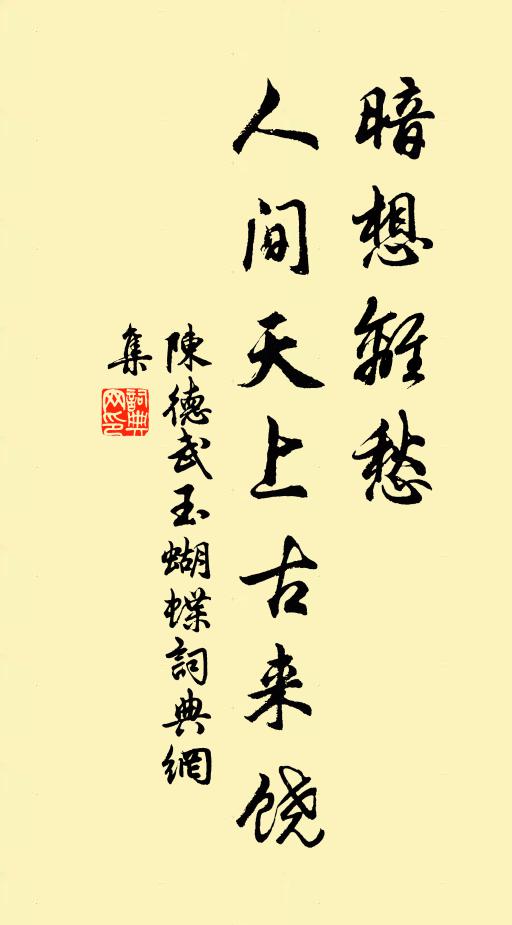 暗想離愁
人间天上古来饶
陳德武玉蝴蝶詞典網
集
詞典网印